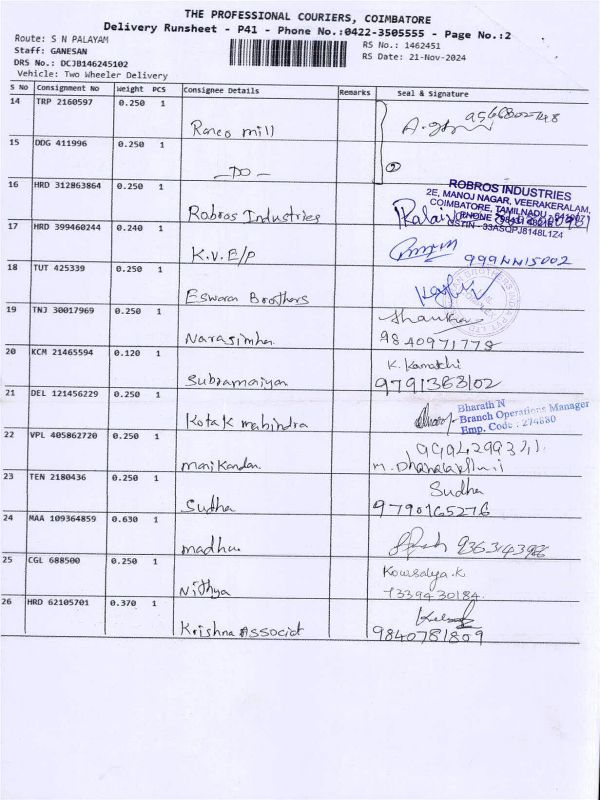 THE PROFESSIONAL COURIERS, COIMBATORE
Delivery Runsheet - P41 - Phone No.:0422-3505555 - Page No.:2
Route: S N PALAYAM
RS No.: 1462451
Staff: GANESAN
RS Date: 21-Nov-2024
DRS No.: DCJB146245102
Vehicle: Two Wheeler Delivery
S No Consignment No Weight PCS Consignee Details Remarks Seal & Signature
14 TRP 2160597 0.250 1
Ranco mill
15 DDG 411996 0.250 1
-DO-
16 HRD 312863864 0.250 1
ROBROS INDUSTRIES
2E, MANOJ NAGAR, VEERAKERALAM,
COIMBATORE, TAMILNADU
Robros Industries
PHONE
GSTIN - 33ASQPJ8148L1Z4
17 HRD 399460244 0.240 1
K.V.E/P
18 TUT 425339 0.250 1
Eswaran Broothers
19 TNJ 30017969 0.250 1
Narasimha
9840971778
20 KCM 21465594 0.120 1
K. Kamatchi
Subramaiyan
9791363102
21 DEL 121456229 0.250 1
Bharath N
Branch Operations Manager
Emp. Code : 274680
Kotak mahindra
22 VPL 405862720 0.250 1
Manikandan
23 TEN 2180436 0.250 1
Sudha
Sudha
9790165276
24 MAA 109364859 0.630 1
madhu
25 CGL 688500 0.250 1
Kousalya.k
Nithya
7339430184.
26 HRD 62105701 0.370 1
Krishna Associat
9840781809